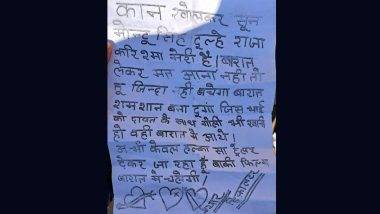 कान खोलकर सून
मोन्टू सिंह दूल्हे राजा
करिश्मा मेरी है। बारात
लेकर मत आना नही तो
तू जिन्दा नही बचेगा बारात
शमशान बना दूंगा जिस भाई
को दावत के साथ गोली भी खानी
हो वही बारात मे आये।
अभी केवल हल्का सा ट्रेलर
देकर जा रहा हूँ बाकी फिल्म
बारात मे चलेगी।